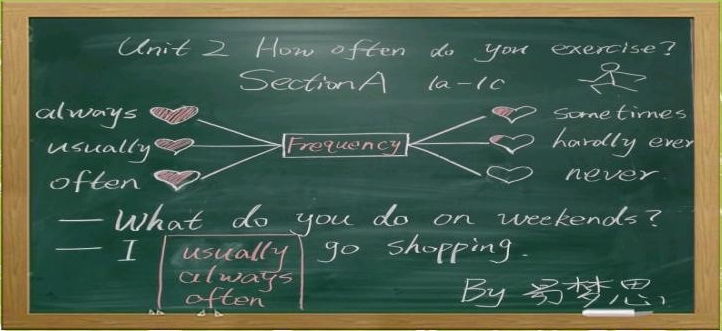 Unit 2 How often do you exercise?
Section A 1a-1c
always sometimes
usually Frequency hardly ever
often never.
— What do you do on weekends?
— I usually go shopping.
always
often
By 易梦思